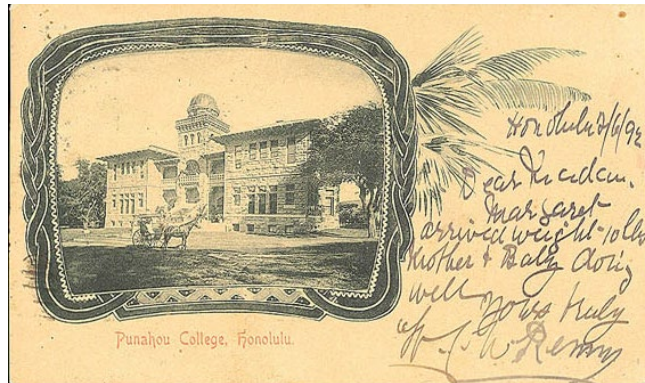 Punahou College, Honolulu.
Honolulu
Dear Madam.
Margaret
arrived weight 10 lbs
Mother & Baby doing
well Yours truly